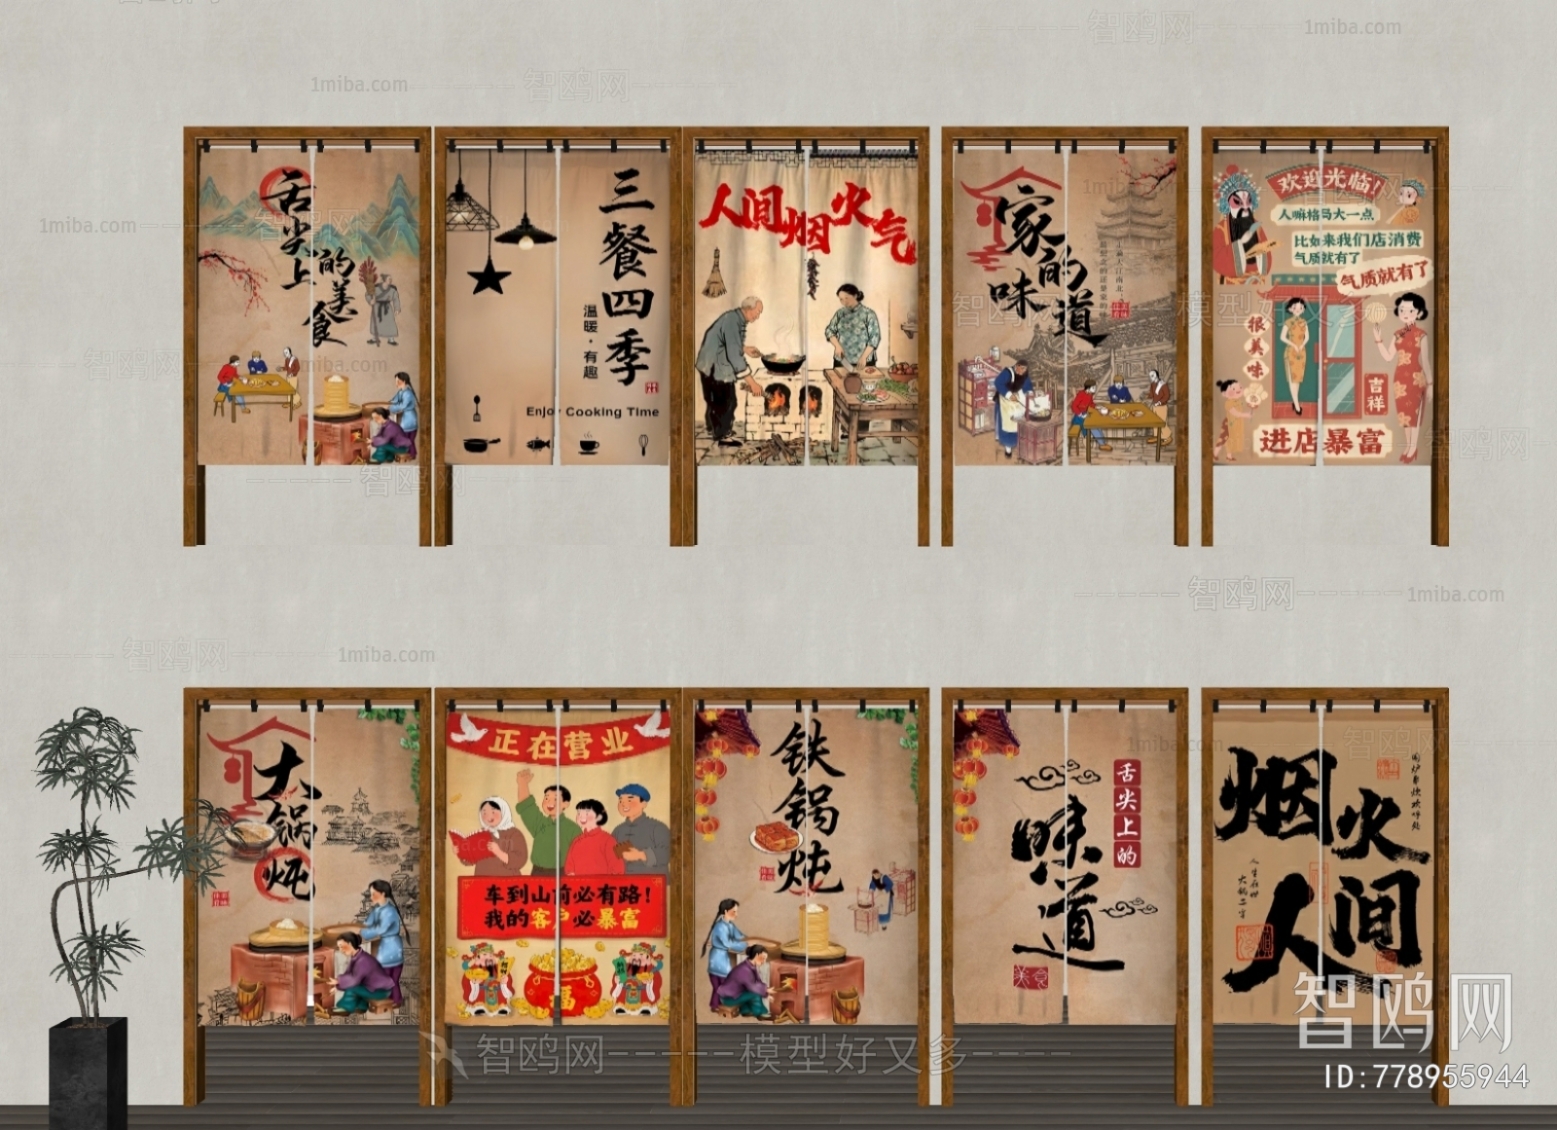 智鸥网
1miba.com
1miba.com
智鸥网
1miba.com
舌尖上
的美食
三餐四季
温暖·有趣
Enjoy Cooking Time
人间烟火气
家的味道
欢迎光临!
人嘛格局大一点
比如来我们店消费
气质就有了
气质就有了
很美味
吉祥
进店暴富
智鸥网
1miba.com
智鸥网
1miba.com
大锅炖
正在营业
车到山前必有路!
我的客户必暴富
福
铁锅炖
舌尖上的
味道
烟火
人间
智鸥网-----模型好又多----
智鸥网
ID:778955944